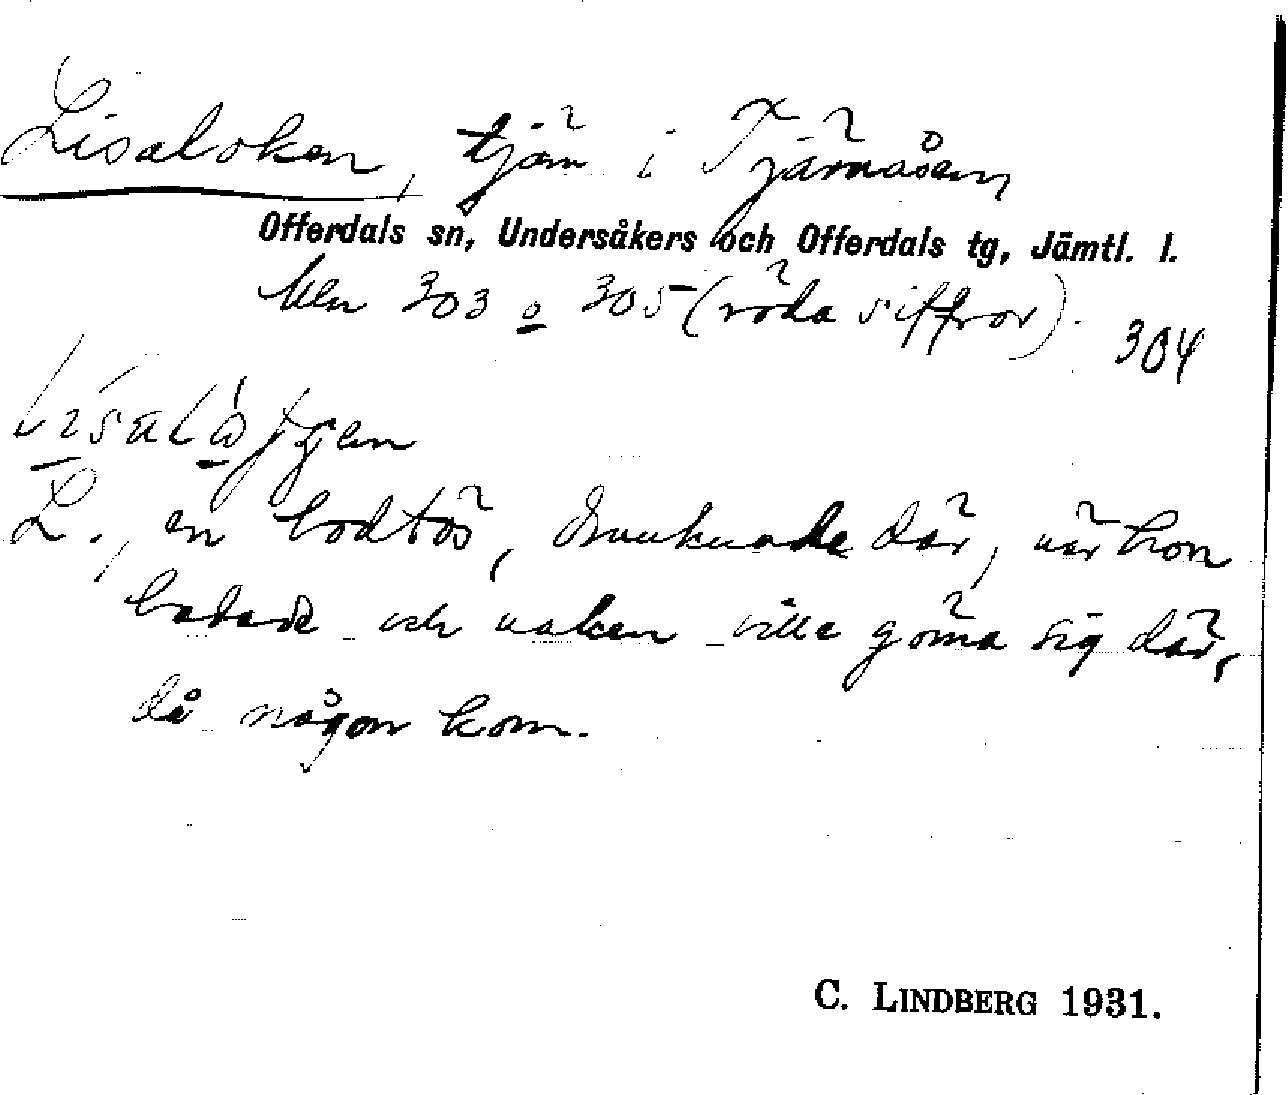 Lisaloken, tjärn i Tjärnåsen,
Offerdals sn, Undersåkers och Offerdals tg, Jämtl. l.
303 o 305 (röda siffror). 304
L., en bodtös, drunknade där, när hon
badade och naken ville göma sig där,
då någon kom.
C. LINDBERG 1931.